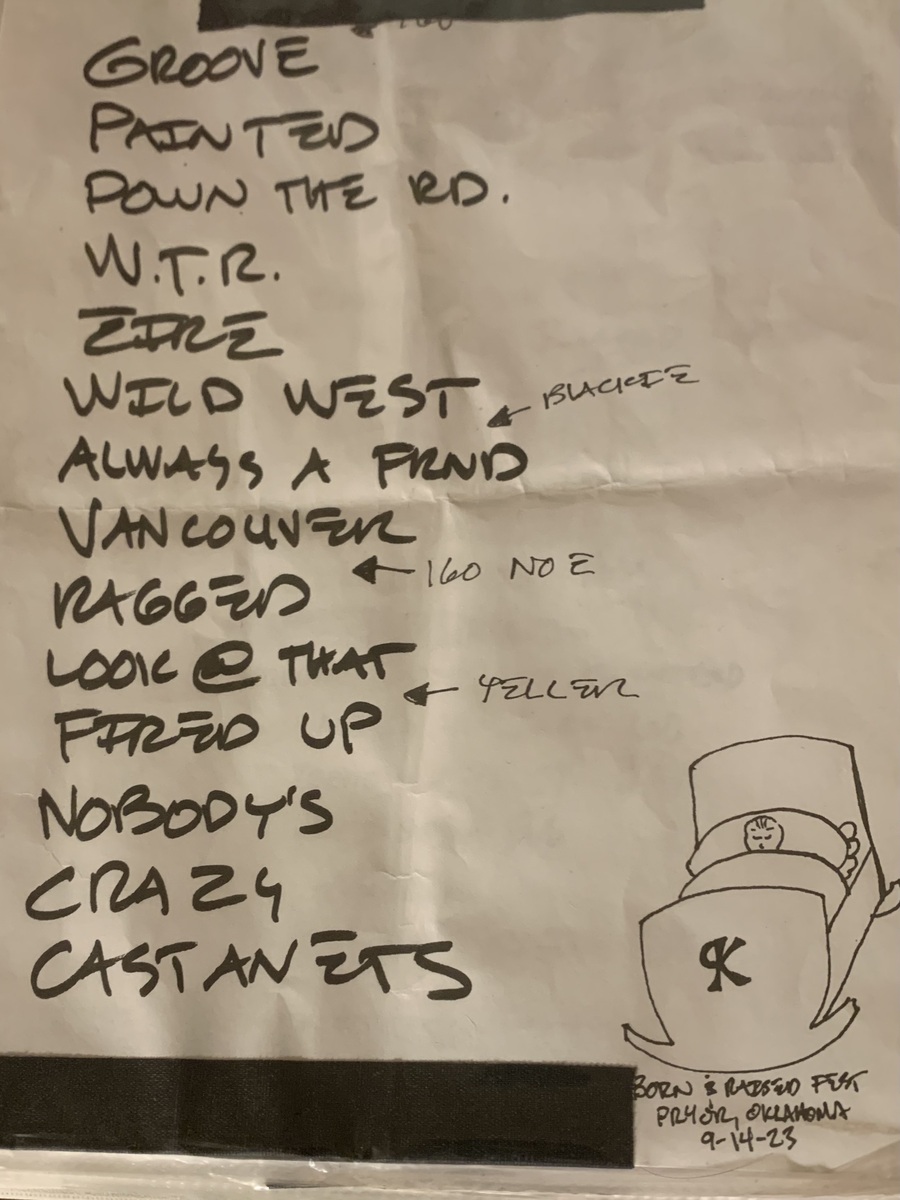 160
GROOVE
PAINTED
DOWN THE RD.
W.T.R.
EIRE
WILD WEST
BLACKIE
ALWAYS A FRND
VANCOUVER
160 NO E
RAGGED
LOOK @ THAT
YELLER
FIRED UP
NOBODY'S
CRAZY
CASTANETS
RK
BORN & RAISED FEST
PRYOR, OKLAHOMA
9-14-23